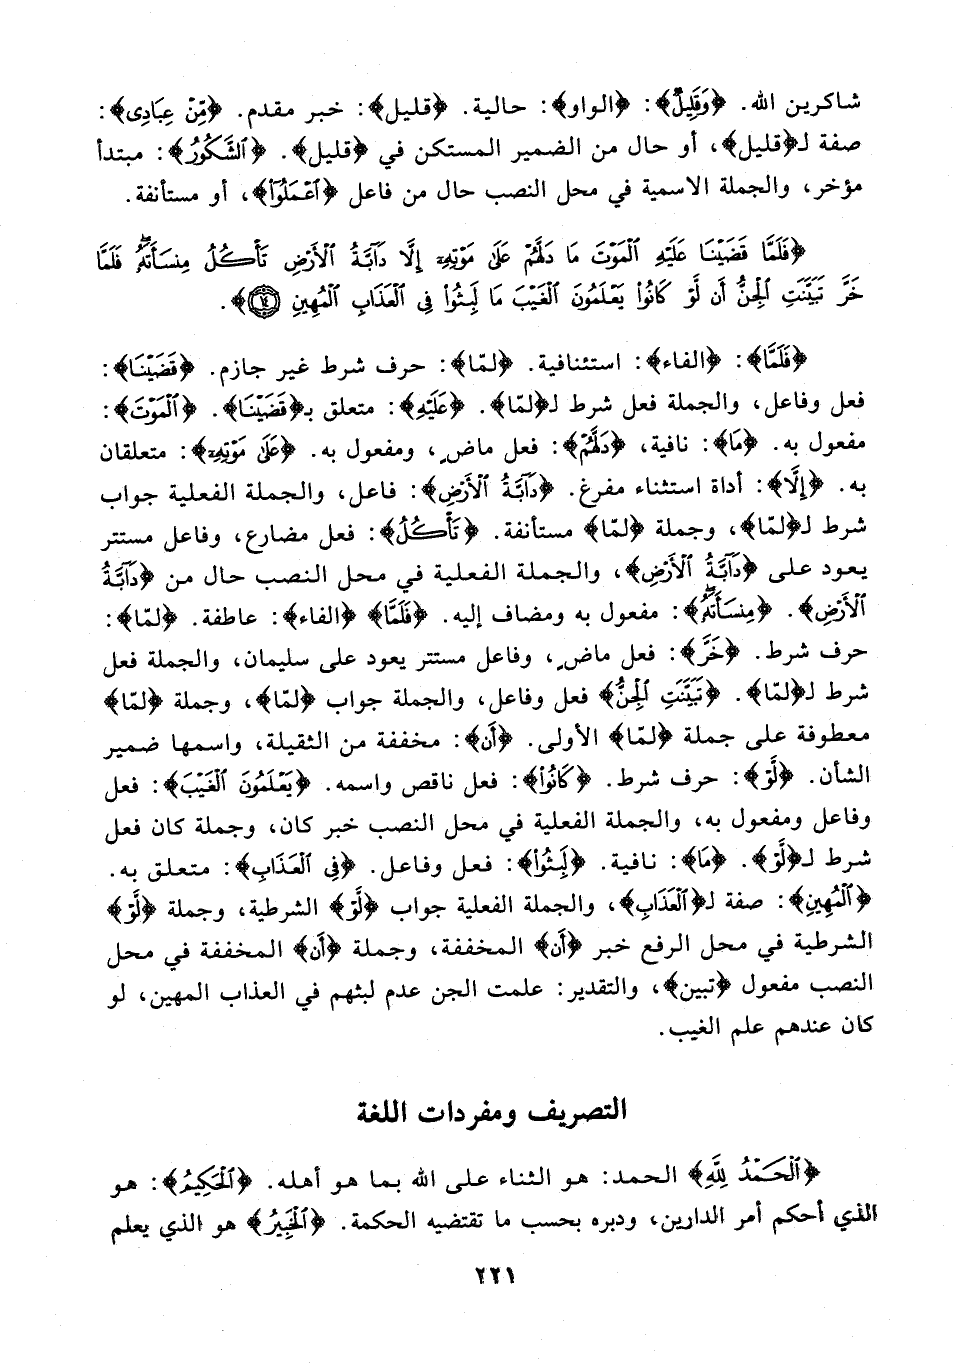 شاكرين الله. ﴿وَقَلِيلٌ﴾: ﴿الواو﴾: حالية. ﴿قليل﴾: خبر مقدم. ﴿مِّنْ عِبَادِىَ﴾:
صفة لـ﴿قليل﴾، أو حال من الضمير المستكن في ﴿قليل﴾. ﴿ٱلشَّكُورُ﴾: مبتدأ
مؤخر، والجملة الاسمية في محل النصب حال من فاعل ﴿ٱعْمَلُوٓا۟﴾، أو مستأنفة.
﴿فَلَمَّا قَضَيْنَا عَلَيْهِ ٱلْمَوْتَ مَا دَلَّهُمْ عَلَىٰ مَوْتِهِۦٓ إِلَّا دَآبَّةُ ٱلْأَرْضِ تَأْكُلُ مِنسَأَتَهُۥ ۖ فَلَمَّا
خَرَّ تَبَيَّنَتِ ٱلْجِنُّ أَن لَّوْ كَانُوا۟ يَعْلَمُونَ ٱلْغَيْبَ مَا لَبِثُوا۟ فِى ٱلْعَذَابِ ٱلْمُهِينِ ١٤﴾.
﴿فَلَمَّا﴾: ﴿الفاء﴾: استئنافية. ﴿لمّا﴾: حرف شرط غير جازم. ﴿قَضَيْنَا﴾:
فعل وفاعل، والجملة فعل شرط لـ﴿لمّا﴾. ﴿عَلَيْهِ﴾: متعلق بـ﴿قَضَيْنَا﴾. ﴿ٱلْمَوْتَ﴾:
مفعول به. ﴿مَا﴾: نافية، ﴿دَلَّهُمْ﴾: فعل ماضٍ، ومفعول به. ﴿عَلَىٰ مَوْتِهِۦٓ﴾: متعلقان
به. ﴿إِلَّا﴾: أداة استثناء مفرغ. ﴿دَآبَّةُ ٱلْأَرْضِ﴾: فاعل، والجملة الفعلية جواب
شرط لـ﴿لمّا﴾، وجملة ﴿لمّا﴾ مستأنفة. ﴿تَأْكُلُ﴾: فعل مضارع، وفاعل مستتر
يعود على ﴿دَآبَّةُ ٱلْأَرْضِ﴾، والجملة الفعلية في محل النصب حال من ﴿دَآبَّةُ
ٱلْأَرْضِ﴾. ﴿مِنسَأَتَهُۥ ۖ﴾: مفعول به ومضاف إليه. ﴿فَلَمَّا﴾ ﴿الفاء﴾: عاطفة. ﴿لمّا﴾:
حرف شرط. ﴿خَرَّ﴾: فعل ماضٍ، وفاعل مستتر يعود على سليمان، والجملة فعل
شرط لـ﴿لمّا﴾. ﴿تَبَيَّنَتِ ٱلْجِنُّ﴾ فعل وفاعل، والجملة جواب ﴿لمّا﴾، وجملة ﴿لمّا﴾
معطوفة على جملة ﴿لمّا﴾ الأولى. ﴿أَن﴾: مخففة من الثقيلة، واسمها ضمير
الشأن. ﴿لَّوْ﴾: حرف شرط. ﴿كَانُوا۟﴾: فعل ناقص واسمه. ﴿يَعْلَمُونَ ٱلْغَيْبَ﴾: فعل
وفاعل ومفعول به، والجملة الفعلية في محل النصب خبر كان، وجملة كان فعل
شرط لـ﴿لَّوْ﴾. ﴿مَا﴾: نافية. ﴿لَبِثُوا۟﴾: فعل وفاعل. ﴿فِى ٱلْعَذَابِ﴾: متعلق به.
﴿ٱلْمُهِينِ﴾: صفة لـ﴿ٱلْعَذَابِ﴾، والجملة الفعلية جواب ﴿لَّوْ﴾ الشرطية، وجملة ﴿لَّوْ﴾
الشرطية في محل الرفع خبر ﴿أَن﴾ المخففة، وجملة ﴿أَن﴾ المخففة في محل
النصب مفعول ﴿تبين﴾، والتقدير: علمت الجن عدم لبثهم في العذاب المهين، لو
كان عندهم علم الغيب.
التصريف ومفردات اللغة
﴿ٱلْحَمْدُ لِلَّهِ﴾ الحمد: هو الثناء على الله بما هو أهله. ﴿ٱلْحَكِيمُ﴾: هو
الذي أحكم أمر الدارين، ودبره بحسب ما تقتضيه الحكمة. ﴿ٱلْخَبِيرُ﴾ هو الذي يعلم
٢٢١